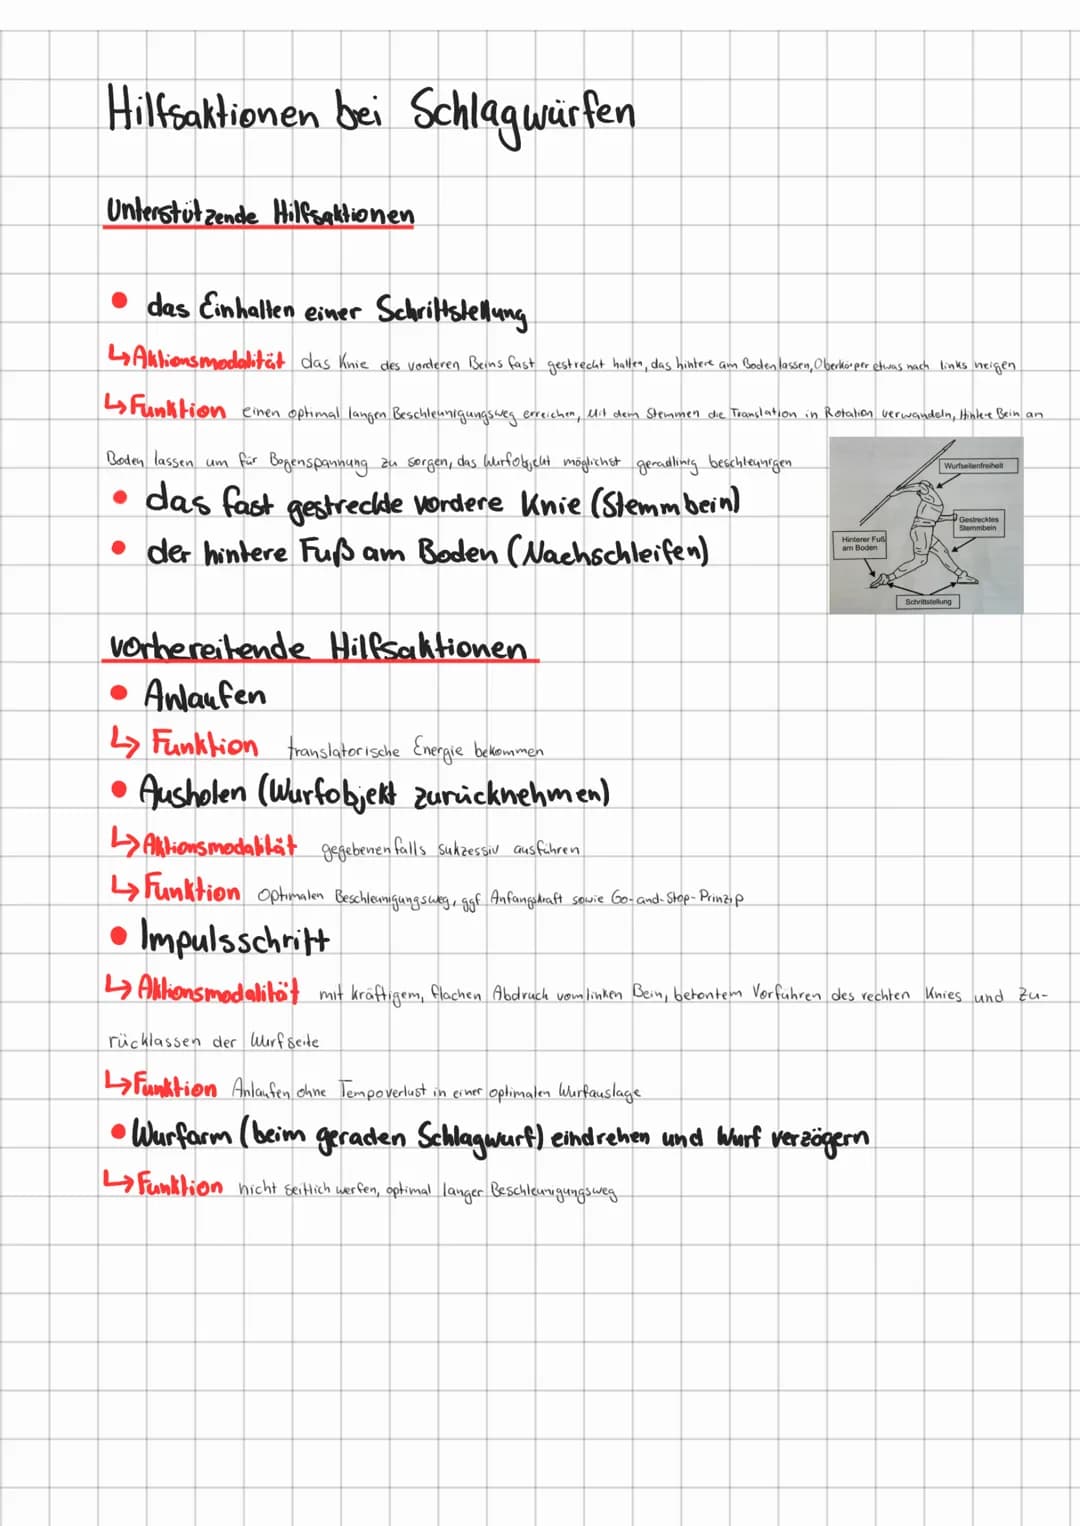 Hilfsaktionen bei Schlagwürfen
Unterstützende Hilfsaktionen
• das Einhalten einer Schrittstellung
↳ Aktionsmodalität das Knie des vorderen Beins fast gestreckt halten, das hintere am Boden lassen, Oberkörper etwas nach links neigen
↳ Funktion einen optimal langen Beschleunigungsweg erreichen, Mit dem Stemmen die Translation in Rotation verwandeln, Hintere Bein an
Boden lassen um für Bogenspannung zu sorgen, das Wurfobjekt möglichst geradlinig beschleunigen
• das fast gestreckde vordere Knie (Stemmbein)
• der hintere Fuß am Boden (Nachschleifen)
Wurfseitenfreiheit
Gestrecktes
Stemmbein
Hinterer Fuß
am Boden
Schrittstellung
vorbereitende Hilfsaktionen
• Anlaufen
↳ Funktion translatorische Energie bekommen
• Ausholen (Wurfobjekt zurücknehmen)
↳ Aktionsmodalität gegebenenfalls sukzessiv ausführen
↳ Funktion Optimalen Beschleunigungsweg, ggf Anfangskraft sowie Go-and-Stop-Prinzip
• Impulsschritt
↳ Aktionsmodalität mit kräftigem, flachen Abdruck vom linken Bein, betontem Vorführen des rechten Knies und Zu-
rücklassen der Wurfseite
↳ Funktion Anlaufen ohne Tempoverlust in einer optimalen Wurfauslage
• Wurfarm (beim geraden Schlagwurf) eindrehen und Wurf verzögern
↳ Funktion nicht seitlich werfen, optimal langer Beschleunigungsweg